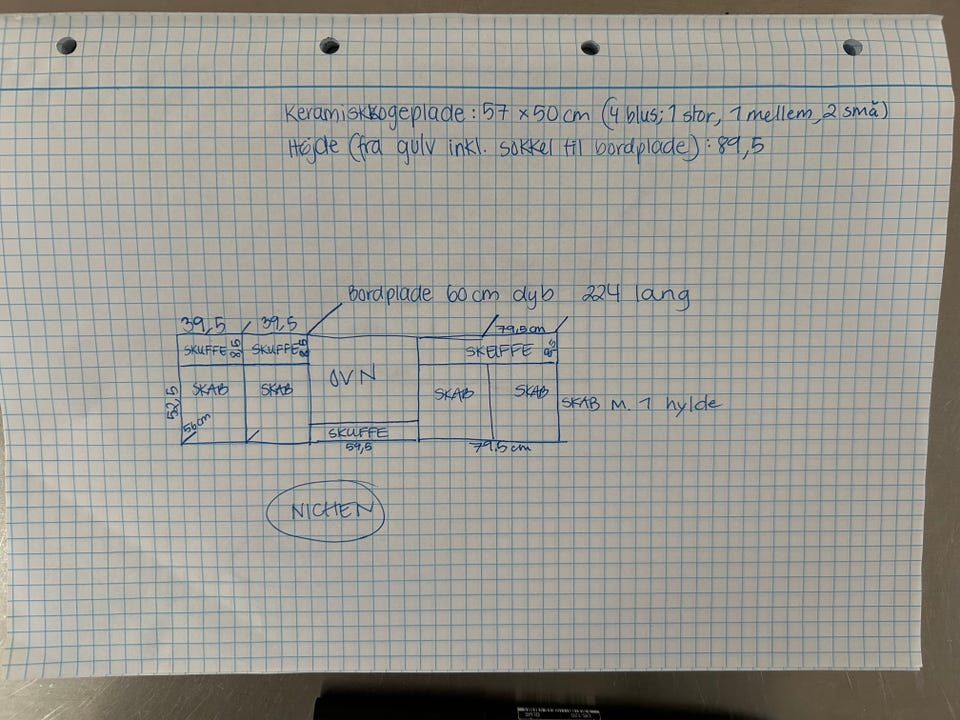 Keramiskkogeplade: 57 x 50 cm (4 blus; 1 stor, 1 mellem, 2 små)
Højde (fra gulv inkl. sokkel til bordplade): 89,5
Bordplade 60 cm dyb 224 lang
39,5 39,5 79,5 cm
SKUFFE SKUFFE SKUFFE
OVN
SKAB SKAB SKAB SKAB
52,5
SKAB M. 1 hylde
56 cm
SKUFFE
59,5 79,5 cm
NICHEN